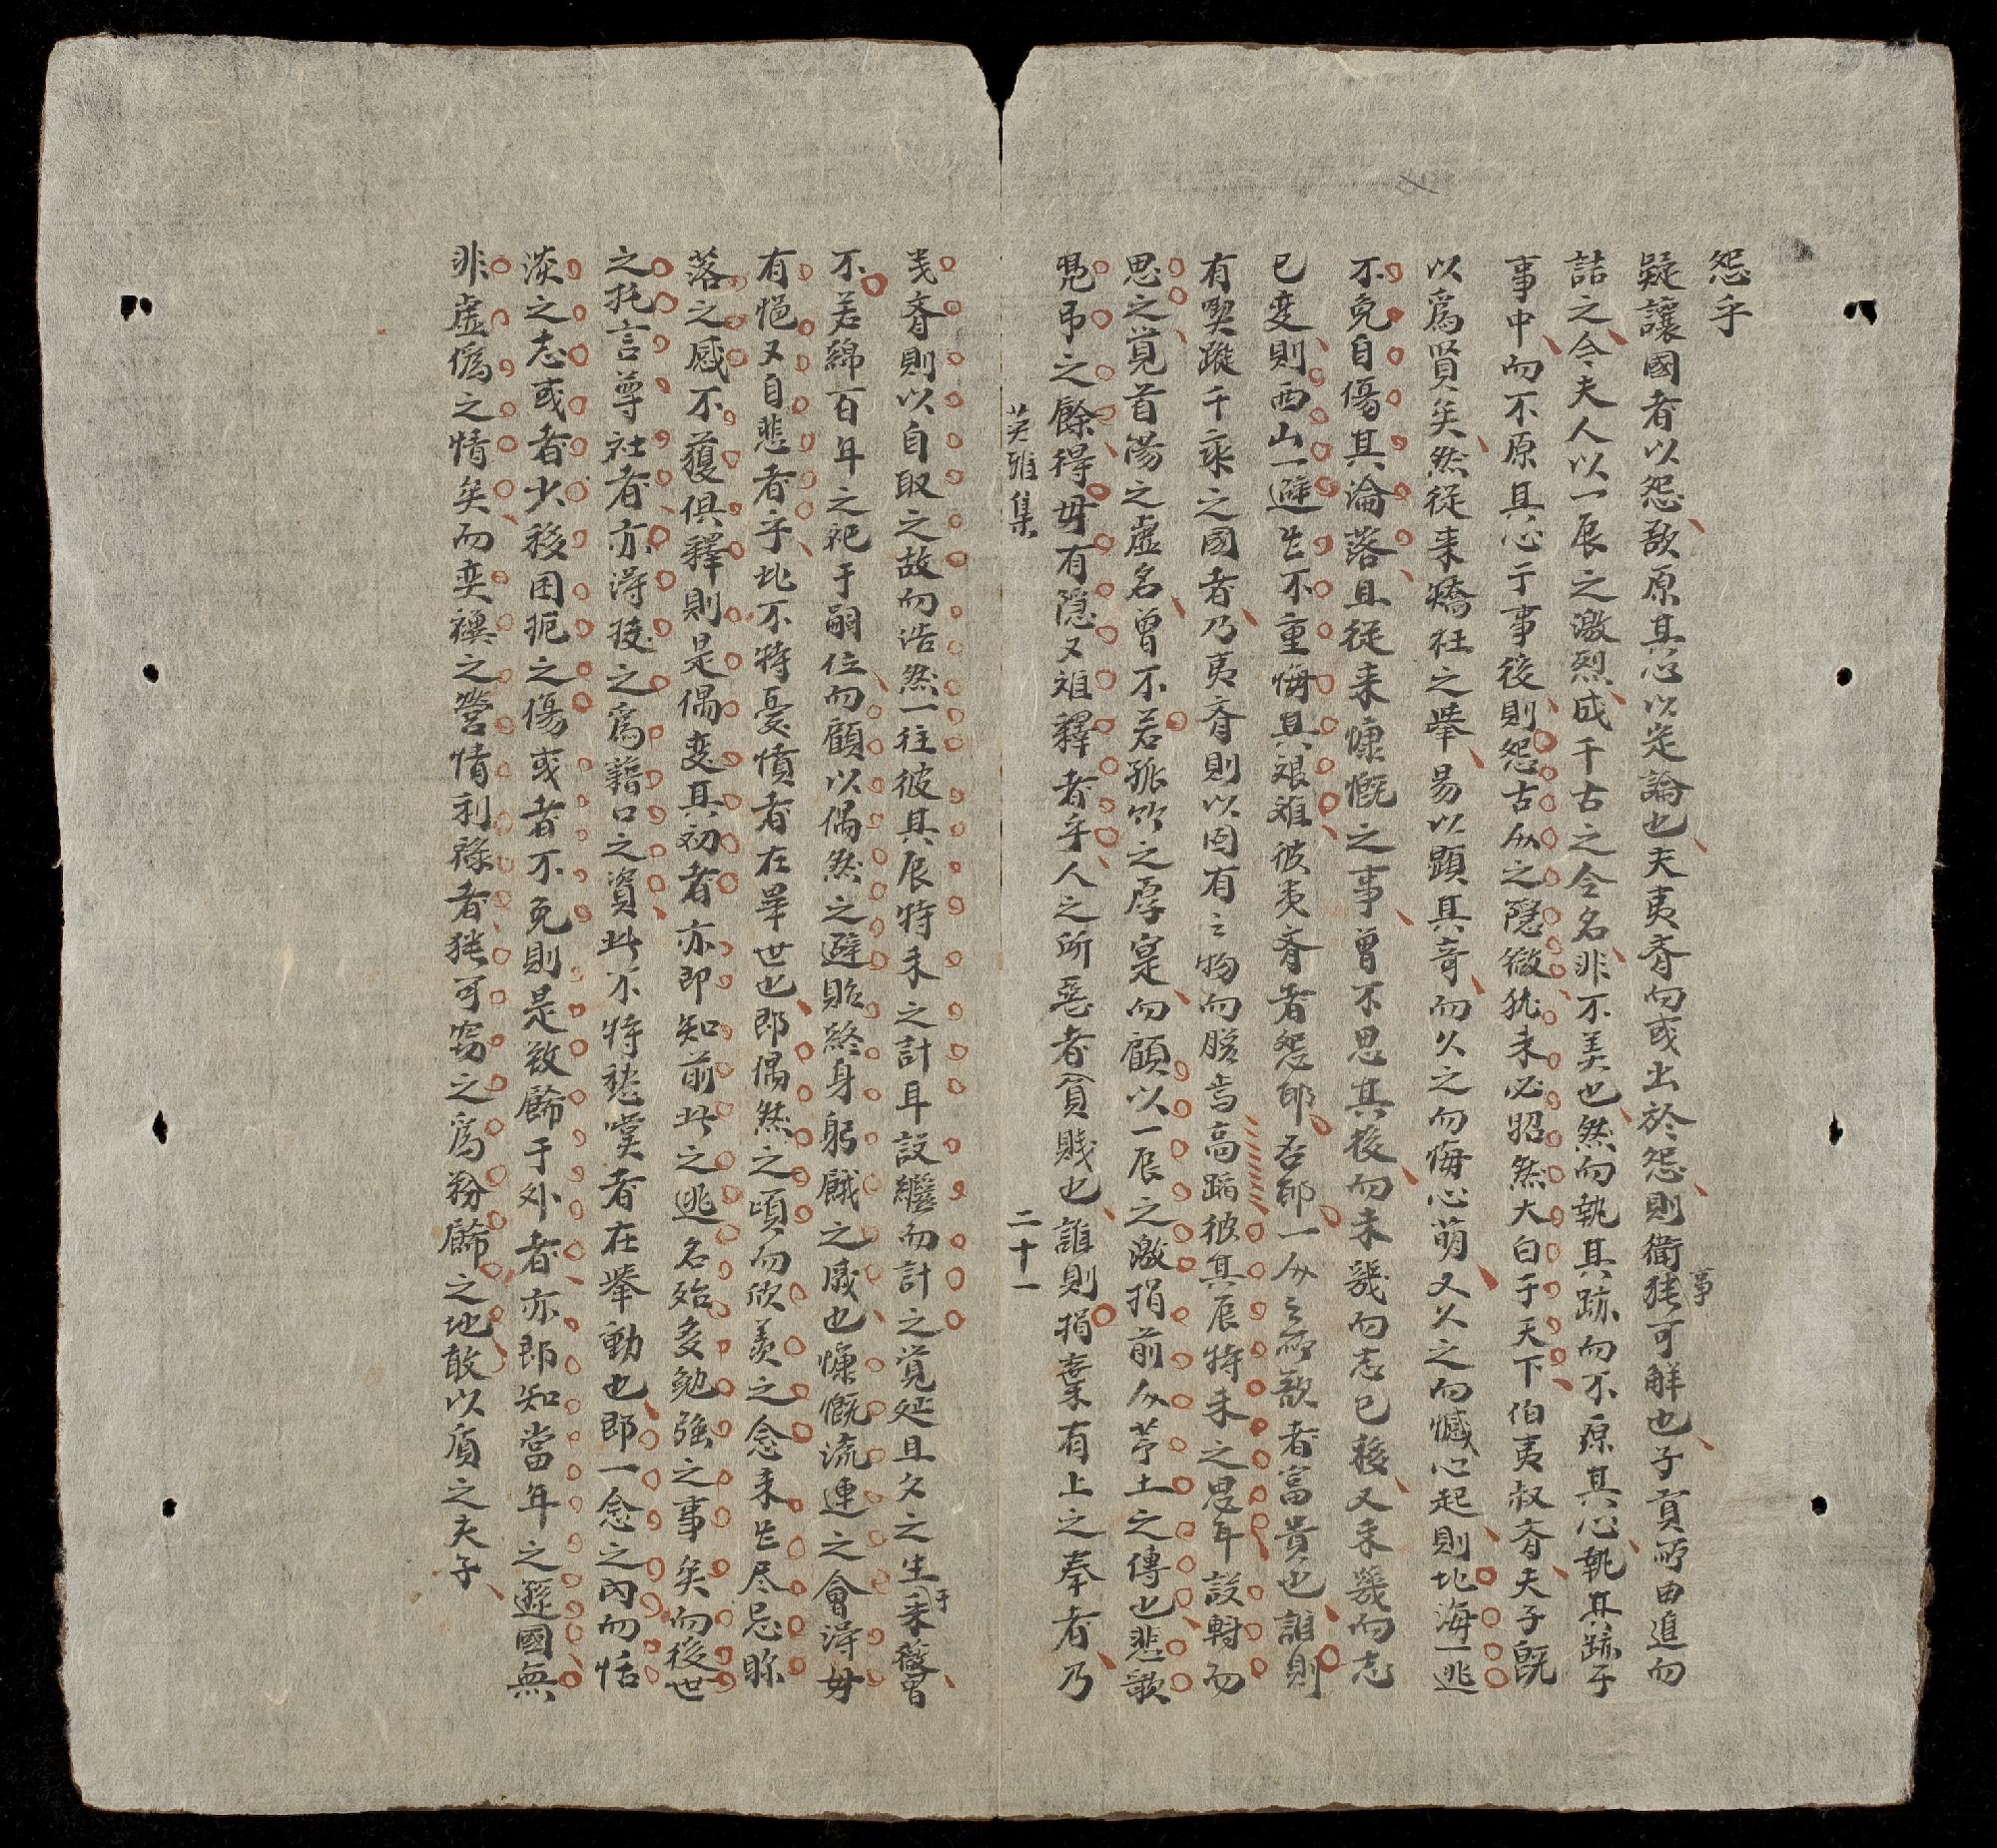 怨乎
疑讓國者以怨故原其心以定論也夫夷齊而或出於怨則衛事猶可解也子貢所由進而
詰之今夫人以一辰之激烈成千古之令名非不美也然而執其跡而不原其心執其跡于
事中而不原其心于事後則怨古人之隱微猶未必昭然大白于天下伯夷叔齊夫子旣
以爲賢矣然從來矯枉之舉易以顕其奇而久之而悔心萌又久之而憾心起則北海一逃
不免自傷其淪落且從来慷慨之事曾不思其後而未幾而志已移又未幾而志
已变則西山一避豈不重悔其艰难彼夷齊者怨耶否耶一人之所歆者富貴也誰則
有喫蹤千乘之國者乃夷齊則以固有之物而勝爲高蹈彼其辰特未之思耳設轉而
思之覚首陽之虚名曾不若孤竹之厚寔而顧以一辰之激捐前人茅土之傳也悲歌
凭吊之餘得毋有隠又难釋者乎人之所惡者貧賤也誰則捐棄有上之奉者乃
芙雅集
二十一
夷齊則以自取之故而浩然一往彼其辰特未之計耳設繼而計之覚延且夕之生于來薇曾
不若綿百年之祀于嗣位而顧以偶然之避貽終身躬餓之感也慷慨流連之會淂毋
有悒又自悲者乎此不特憂憤者在畢世也即偶然之頃而欣羨之念未岂尽忘眎
落之感不獲俱釋則是偶变其初者亦即知前此之逃名殆多勉強之事矣而後世
之托言尊社者亦淂援之爲藉口之資此不特愁嘆者在舉動也即一念之内而恬
淡之志或者少移困扼之傷或者不免則是致餙于外者亦即知當年之遜國無
非虛僞之情矣而奕禩之營情利祿者猶可窃之爲粉餙之地敢以質之夫子